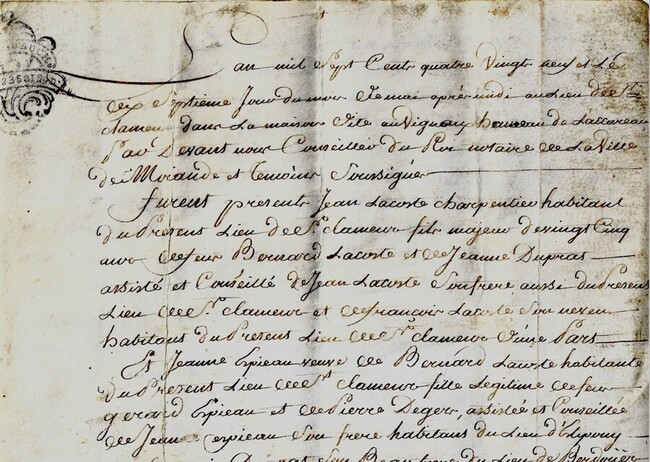 L'an mil Sept Cents quatre Vingt neuf et Le
dix Septieme Jour du mois De mai après midi au Lieu de St.
clamens dans La maison
Par Devant nous Conseiller du Roi notaire de La Ville
de Mirande et temoins Soussignés
furent presents Jean Lacoste charpentier habitant
du Present Lieu de St. clamens fils majeur de vingt Cinq
ans de feu Bernard Lacoste et de Jeanne Dupras
assisté et Conseillé de Jean Lacoste Son frere aussi du Present
Lieu de St. clamens et de françois Lacoste Son neveu
habitans du Present Lieu de St. clamens d'une Part
Et Jeanne Espieau veuve de Bernard Lacoste habitante
du Present Lieu de St. clamens fille Legitime de feu
gerard Espieau et de Pierre Deger, assistée et Conseillée
de Jean Espieau Son frere habitant du Lieu
Dupras Son Beau du Lieu de